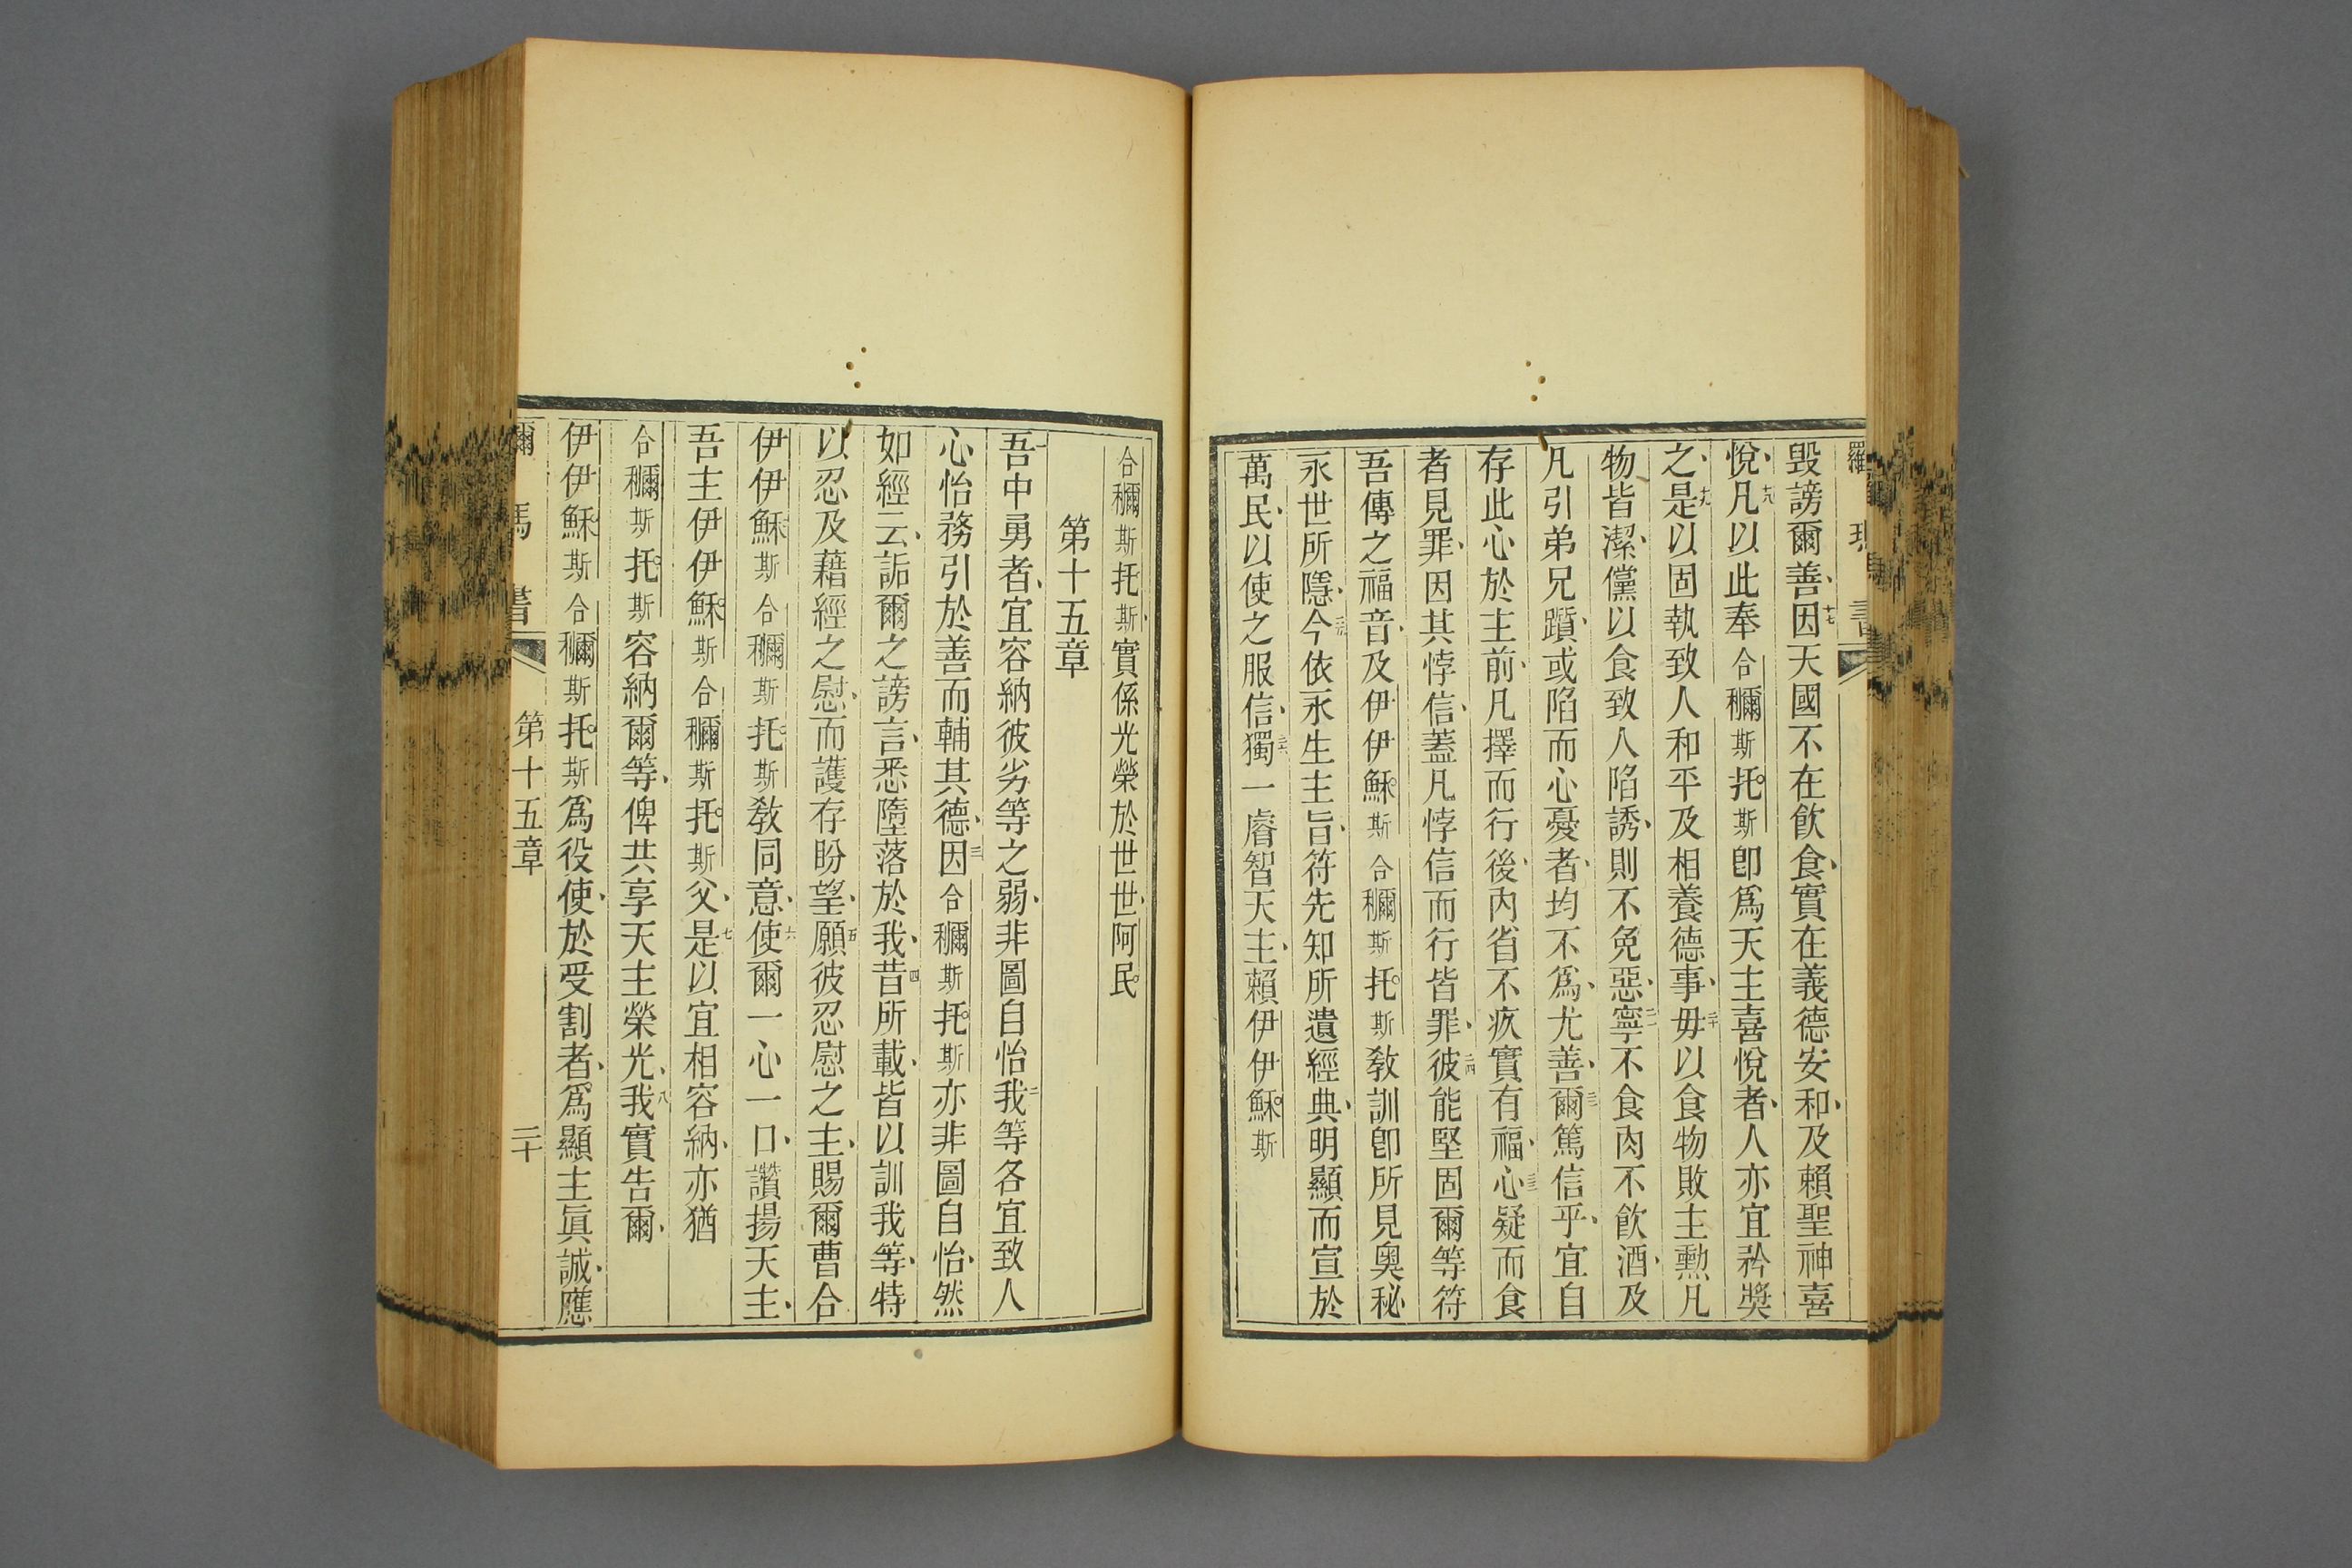 毀謗爾善、十七因天國不在飲食、實在義德安和、及賴聖神喜
悅、十八凡以此奉合穪斯托。斯卽爲天主喜悅者、人亦宜衿獎
之、十九是以固執致人和平及相養德事、二十毋以食物敗主勲凡
物皆潔、儻以食致人陷誘、則不免惡、二一寧不食肉不飲酒、及
凡引弟兄躓、或陷而心憂者、均不爲尤善、二二爾篤信乎、宜自
存此心於主前、凡擇而行後、內省不疚實有福、二三心疑而食
者見罪、因其悖信、蓋凡悖信而行皆罪、二四彼能堅固爾等符
吾傳之福音、及伊伊穌。斯合穪斯托。斯敎訓卽所見奥秘
永世所隱、二五今依永生主旨、符先知所遺經典、明顯而宣於
萬民、以使之服信、二六獨一睿智天主、賴伊伊穌。斯
合穪斯托斯、實係光榮於世世、阿民。
第十五章
一吾中勇者、宜容納彼劣等之弱、非圖自怡二我等各宜致人
心怡務引於善而輔其德、三因合穪斯托。斯亦非圖自怡、然
如經云、詬爾之謗言、悉墮落於我、四昔所載、皆以訓我等、特
以忍及藉經之慰、而護存盼望、五願彼忍慰之主、賜爾曹合
伊伊穌斯合穪斯托斯敎同意、六使爾一心一口、讚揚天主、
吾主伊伊穌。斯合穪斯托。斯父、七是以宜相容納、亦猶
合穪斯托。斯容納爾等、俾共享天主榮光、八我實告爾、
伊伊穌斯合穪斯托。斯爲役使、於受割者、爲顯主眞誠、應
書
第十五章
二十